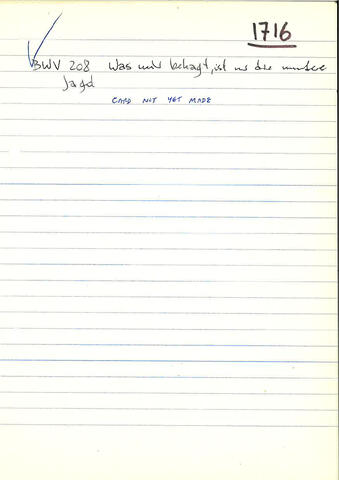 1716
BWV 208 Was mir behagt, ist nur die muntre
Jagd
CARD NOT YET MADE